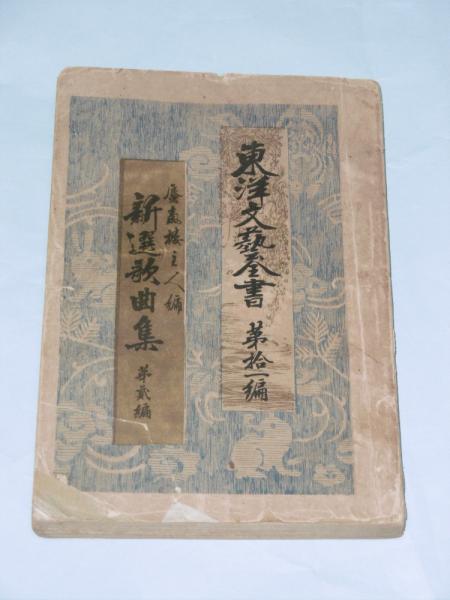 東洋文藝全書 第拾一編
主人編
新選歌曲集 第貳編